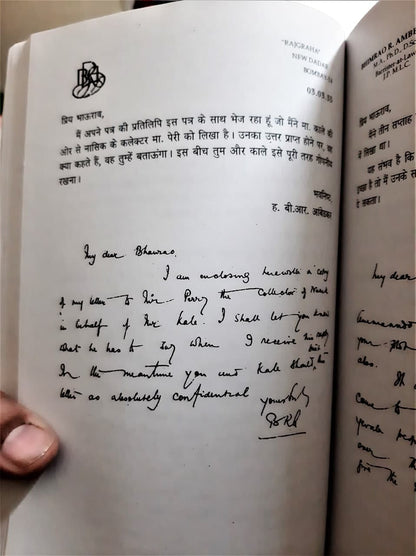 "RAJGRAHA"
NEW DADAR
BOMBAY-14
03.03.35
प्रिय भाऊराव,
मैं अपने पत्र की प्रतिलिपि इस पत्र के साथ भेज रहा हूं जो मैंने मा. काले की
ओर से नासिक के कलेक्टर मा. पेरी को लिखा है। उनका उत्तर प्राप्त होने पर, वह
क्या कहते हैं, वह तुम्हें बताऊंगा। इस बीच तुम और काले इसे पूरी तरह गोपनीय
रखना।
भवनिष्ठ,
ह. बी.आर. आंबेडकर
My dear Bhaurao,
I am enclosing herewith a copy
of my letter to Mr. Perry the Collector of Nasik
in behalf of Mr Kale. I shall let you know
what he has to say when I receive his reply
In the meantime you and Kale should
letter as absolutely confidential
Yours truly
BRA
BHIMRAO R. AMBE
M.A., Ph.D., D.Sc
Barrister-at-Law
J.P. M.L.C
प्रिय भाऊराव,
मैंने तीन सप्ताह
में लिखा था।
यह संभव है कि
इच्छा है तो मैं उनसे
दे सकता।
My dear